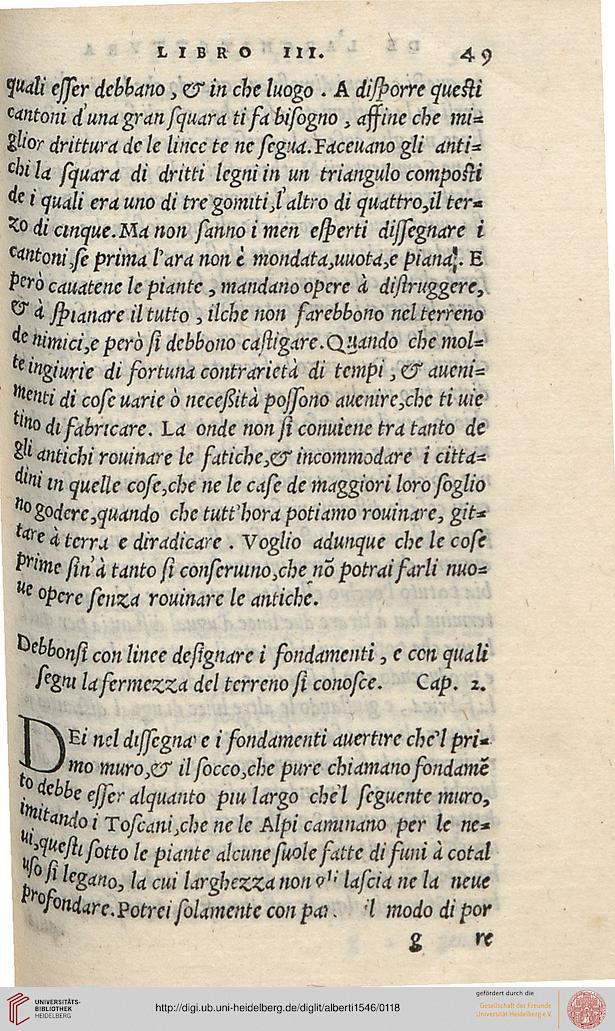 LIBRO III. 49
quali eſſer debbano , & in che luogo . A diſporre queſti
cantoni d'una gran ſquara ti fa biſogno , affine che mi=
glior drittura de le linee te ne ſegua. Faceuano gli anti=
chi la ſquara di dritti legni in un triangulo compoſti
de i quali era uno di tre gomiti, l'altro di quattro, il ter=
zo di cinque. Ma non ſanno i men eſperti diſſegnare i
cantoni, ſe prima l'ara non è mondata, uuota, e piana. E
però cauatene le piante , mandano opere à diſtruggere,
& à ſpianare il tutto , ilche non farebbono nel terreno
de nimici, e però ſi debbono caſtigare. Quando che mol=
te ingiurie di fortuna contrarietà di tempi , & aueni=
menti di coſe uarie ò neceßità poſſono auenire, che ti uie
tino di fabricare. La onde non ſi conuiene tra tanto de
gli antichi rouinare le fatiche, & incommodare i citta=
dini in quelle coſe, che ne le caſe de maggiori loro ſoglio
no godere, quando che tutt'hora potiamo rouinare, git=
tare à terra e diradicare . Voglio adunque che le coſe
prime ſin'à tanto ſi conſeruino, che nõ potrai farli nuo=
ue opere ſenza rouinare le antiche.
Debbonſi con linee deſignare i fondamenti , e con quali
ſegni la fermezza del terreno ſi conoſce. Cap. 2.
DEi nel diſſegnare i fondamenti auertire che'l pri=
mo muro, & il ſocco, che pure chiamano fondamẽ
to debbe eſſer alquanto piu largo che'l ſeguente muro,
imitando i Toſcani, che ne le Alpi caminano per le ne=
ui, queſti ſotto le piante alcune ſuole fatte di funi à cotal
uſo ſi legano, la cui larghezza non gli laſcia ne la neue
profondare. Potrei ſolamente con il modo di por
g re
UNIVERSITÄTS-
BIBLIOTHEK
HEIDELBERG
http://digi.ub.uni-heidelberg.de/diglit/alberti1546/0118
gefördert durch die
Gesellschaft der Freunde
Universität Heidelberg e.V.